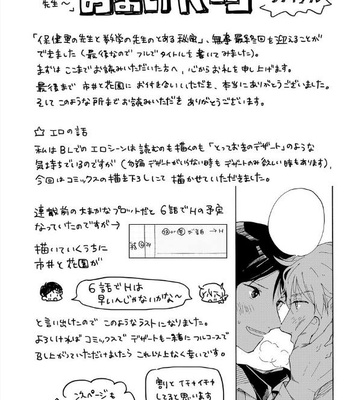 先生〜
おまけページ
「保健室の先生と数学の先生のとある秘蜜」、無事最終回を迎えることが
できました(最後なのでフルタイトルも書いてみました)。
まずはここまでお読みいただいた方へ、心からお礼を申し上げます。
最後まで市井と花園にお付き合いくださり、本当にありがとうございました。
そしてこのような所までお読みいただきありがとうございます。
☆エロの話
私はBLでのエロシーンは読むのも描くのも「とっておきのデザート」のような
気持ちでいるのですが(勿論デザートがいらない時もデザートのみ欲しい時もあります)、
今回はコミックスの描き下ろしにて描かせていただきました。
連載前の大まかなプロットだと6話でHの予定
なっていたのですが→
→H
描いていくうちに
市井と花園が
6話でHは
早いんじゃないかな〜
と言い出したのでこのようなラストになりました。
よろしければコミックスでデザートも一緒にフルコースで
召し上がっていただけましたらこれ以上なく幸いです。
次ページも
割とイチャイチャ
してると思います